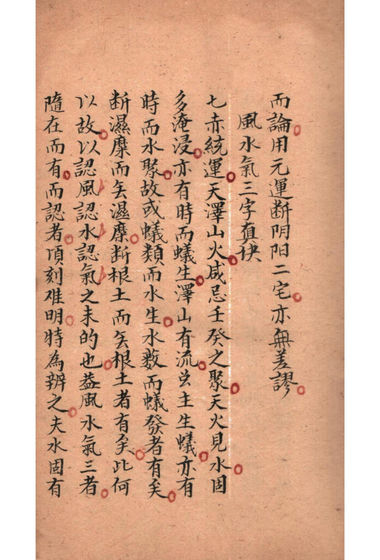 而論用元運断阴阳二宅亦無差謬
風水氣三字真诀
七赤統運天澤山火咸忌壬癸之聚天火見水固
多淹浸亦有時而蟻生澤山有流出主生蟻亦有
時而水聚故或蟻類而水生水數而蟻發者有矣
断濕糜而矣濕糜断根土而矣根土者有矣此何
以故以認風認水認氣之未的也蓋風水氣三者
隨在而有而認者頃刻难明特為辨之夫水固有